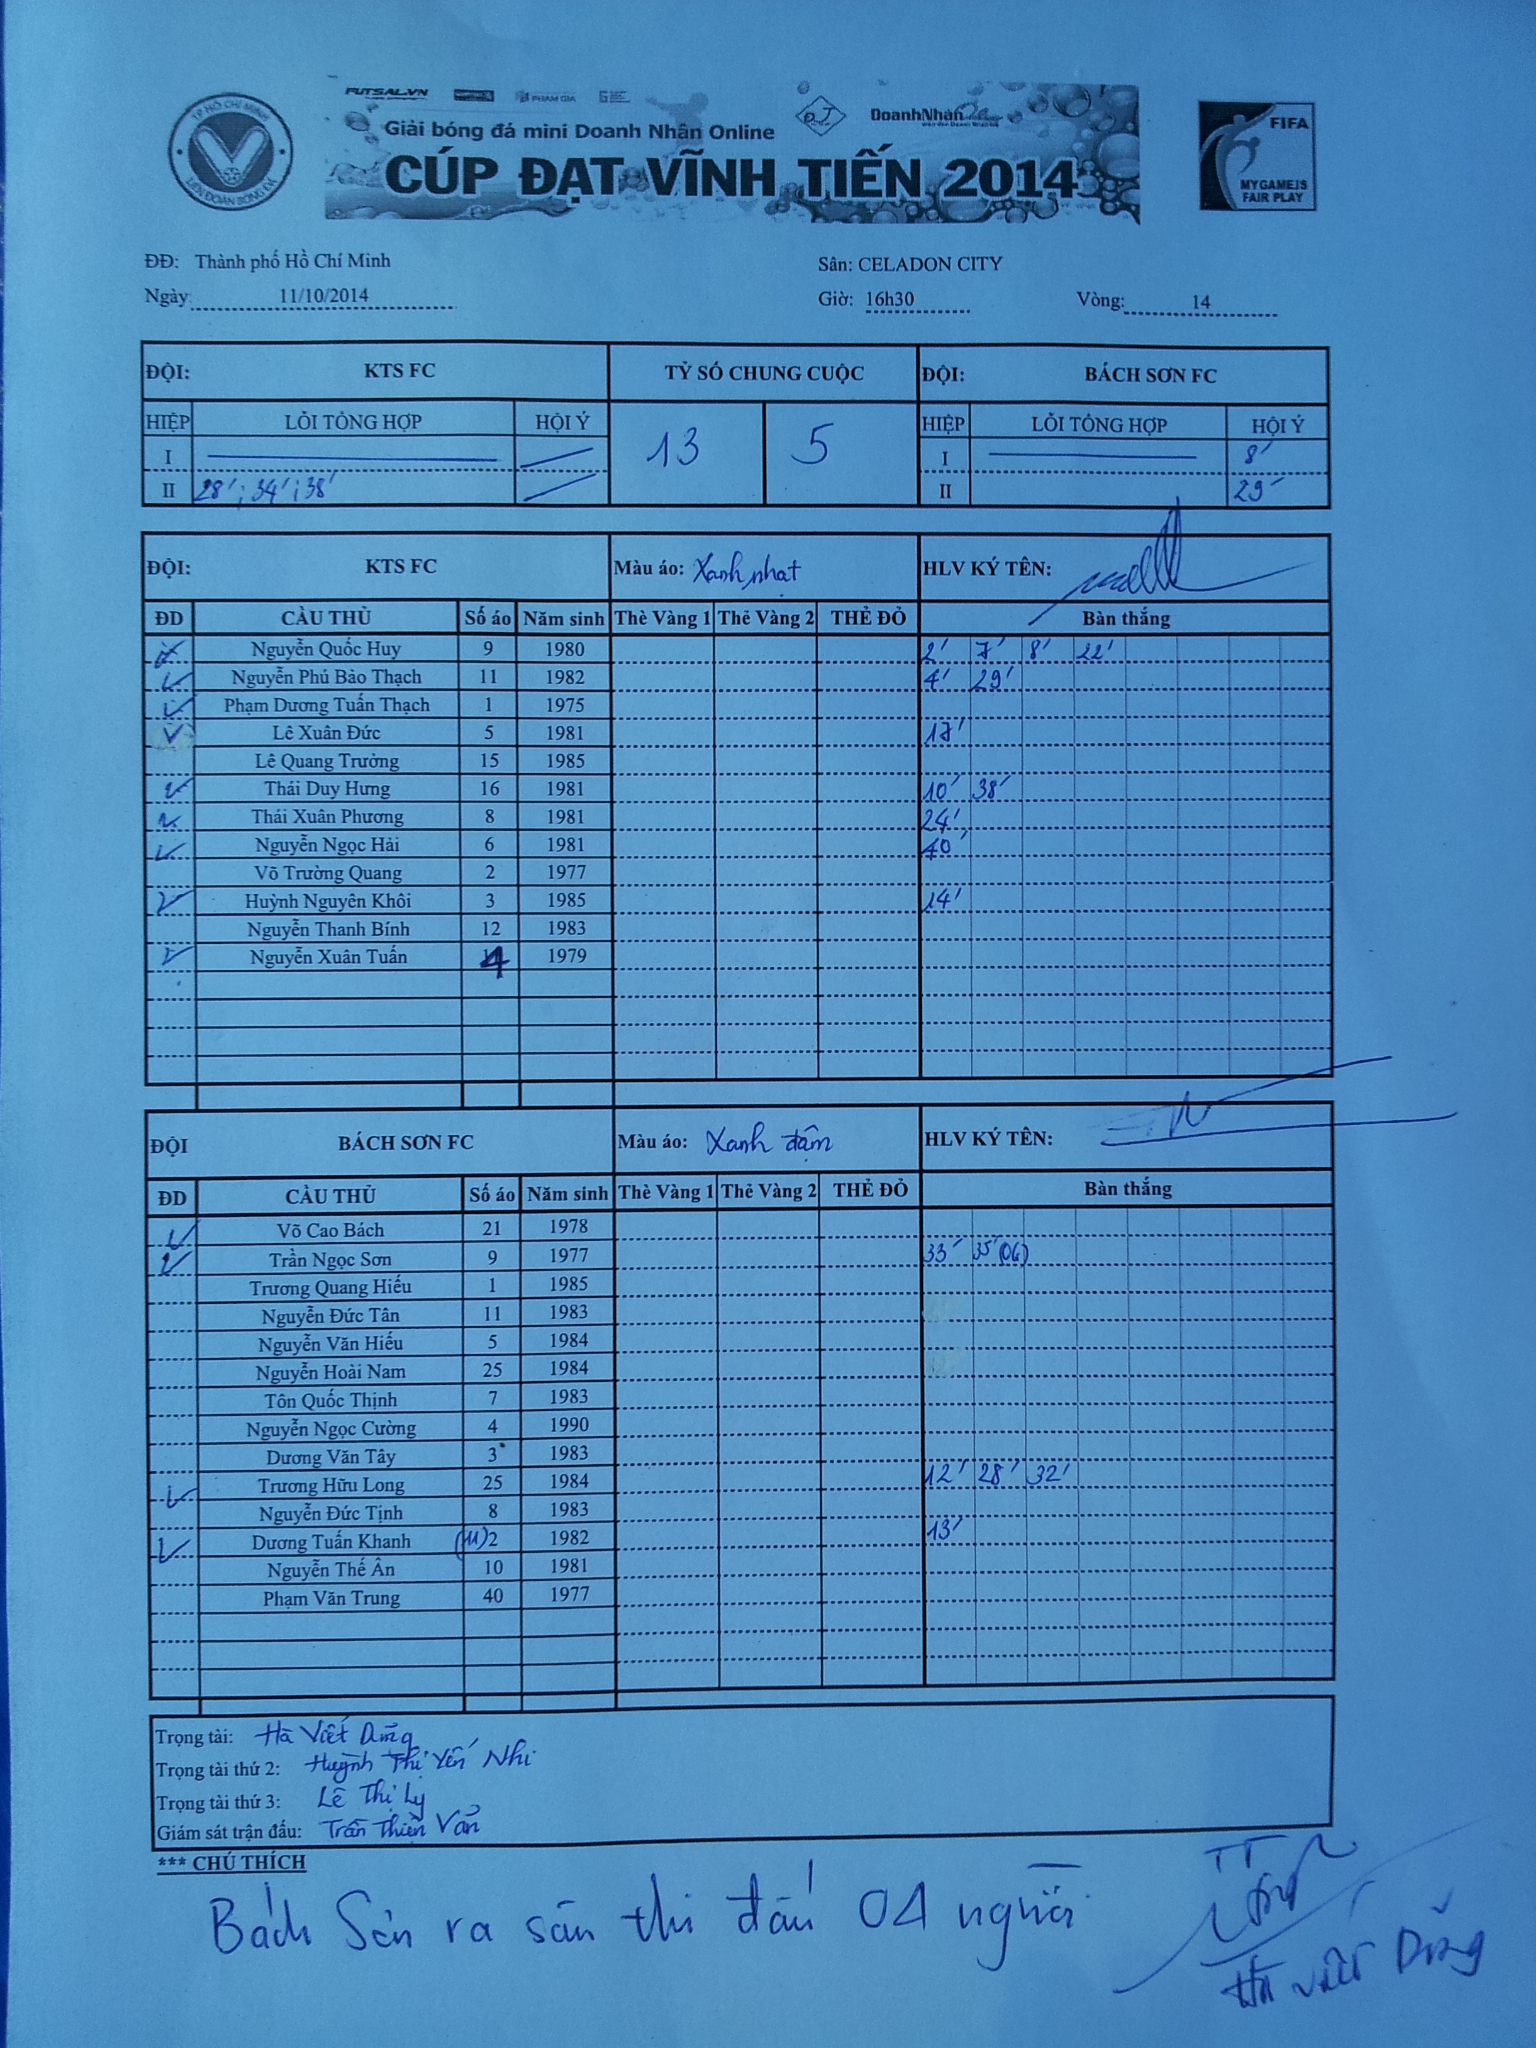 TP HỒ CHÍ MINH
LIÊN ĐOÀN BÓNG ĐÁ
FUTSAL.VN PHAM GIA
ĐJ DoanhNhân
Giải bóng đá mini Doanh Nhân Online
CÚP ĐẠT VĨNH TIẾN 2014
FIFA
MY GAME IS
FAIR PLAY
ĐĐ: Thành phố Hồ Chí Minh Sân: CELADON CITY
Ngày: 11/10/2014 Giờ: 16h30 Vòng: 14
ĐỘI: KTS FC TỶ SỐ CHUNG CUỘC ĐỘI: BÁCH SƠN FC
HIỆP LỖI TỔNG HỢP HỘI Ý 13 5 HIỆP LỖI TỔNG HỢP HỘI Ý
I I 8'
II 28' ; 34' ; 38' II 29'
ĐỘI: KTS FC Màu áo: Xanh nhạt HLV KÝ TÊN:
ĐD CẦU THỦ Số áo Năm sinh Thẻ Vàng 1 Thẻ Vàng 2 THẺ ĐỎ Bàn thắng
Nguyễn Quốc Huy 9 1980 2' 7' 8' 22'
Nguyễn Phú Bảo Thạch 11 1982 4' 29'
Phạm Dương Tuấn Thạch 1 1975
Lê Xuân Đức 5 1981 17'
Lê Quang Trưởng 15 1985
Thái Duy Hưng 16 1981 10' 38'
Thái Xuân Phương 8 1981 24'
Nguyễn Ngọc Hải 6 1981 40'
Võ Trường Quang 2 1977
Huỳnh Nguyên Khôi 3 1985 14'
Nguyễn Thanh Bính 12 1983
Nguyễn Xuân Tuấn 4 1979
ĐỘI BÁCH SƠN FC Màu áo: Xanh đậm HLV KÝ TÊN:
ĐD CẦU THỦ Số áo Năm sinh Thẻ Vàng 1 Thẻ Vàng 2 THẺ ĐỎ Bàn thắng
Võ Cao Bách 21 1978
Trần Ngọc Sơn 9 1977 33' 35' (OG)
Trương Quang Hiếu 1 1985
Nguyễn Đức Tân 11 1983
Nguyễn Văn Hiếu 5 1984
Nguyễn Hoài Nam 25 1984
Tôn Quốc Thịnh 7 1983
Nguyễn Ngọc Cường 4 1990
Dương Văn Tây 3 1983
Trương Hữu Long 25 1984 12' 28' 32'
Nguyễn Đức Tịnh 8 1983
Dương Tuấn Khanh (11) 2 1982 13'
Nguyễn Thế Ân 10 1981
Phạm Văn Trung 40 1977
Trọng tài: Hà Viết Dũng
Trọng tài thứ 2: Huỳnh Thị Yến Nhi
Trọng tài thứ 3: Lê Thị Ly
Giám sát trận đấu: Trần Thiên Vẩn
*** CHÚ THÍCH
Bách Sơn ra sân thi đấu 04 người
TT
Hà Viết Dũng